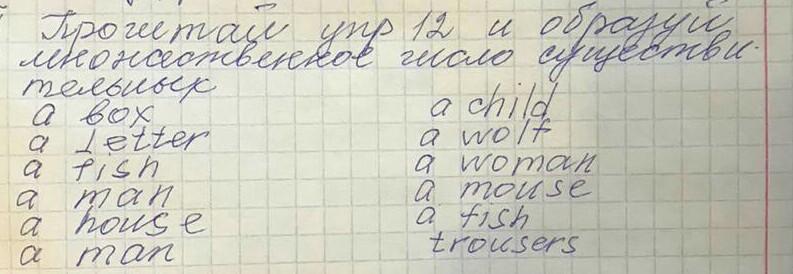 Прочитай упр 12 и образуй
множественное число существи-
тельных
a box
a letter
a fish
a man
a house
a man
a child
a wolf
a woman
a mouse
a fish
trousers